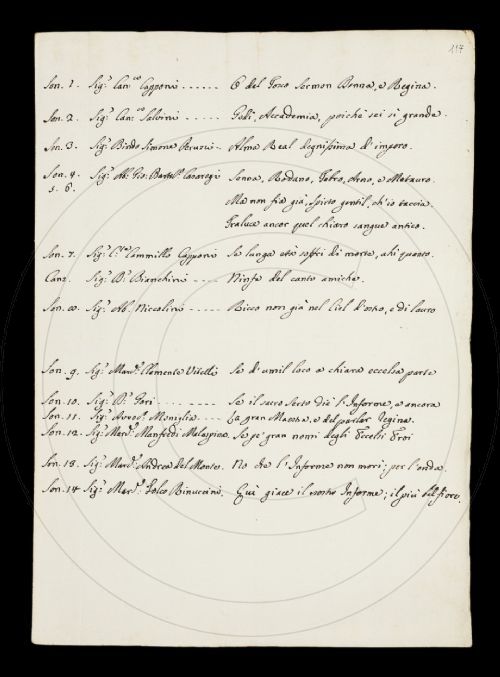 117
Son. 1. Sig.r Can.co Capponi ...... O del Tosco Sermon Donna, e Regina.
Son. 2. Sig.r Can.co Salvini ..... Godi, Accademia, poiché sei sì grande.
Son. 3. Sig.r Bindo Simone Peruzzi .. Alma Real degnissima d'impero.
Son. 4. Sig.r Ab. Gio: Bartol.o Casaregi Senna, Rodano, Tebro, Arno, e Metauro.
5. 6. Ma non fia già, spirto gentil, ch'io taccia.
Traluce ancor quel chiaro sangue antico.
Son. 7. Sig.r C.te Cammillo Capponi Se lunga età soffri di morte, ahi quanto.
Canz. Sig.r D.r Bianchini ..... Ninfe del canto amiche.
Son. 8. Sig.r Ab. Niccolini ..... Ricco non già nel Ciel d'ostro, e di lauro
Son. 9. Sig.r Mar.se Clemente Vitelli Se d'umil loco a chiara eccelsa parte
Son. 10. Sig.r D.r Gori .......... Se il sacro Serto diè l'Informe, e ancora
Son. 11. Sig.r Avvoc.o Moniglia .... La gran Maestra, e del parlar Regina.
Son. 12. Sig.r Mar.se Manfredi Malaspina. Se pe' gran nomi degli Eccelsi Eroi
Son. 13. Sig.r Mar.se Andrea Del Monte. No che l'Informe non morì; per l'onda
Son. 14 Sig.r Mar.se Folco Rinuccini. Quì giace il nostro Informe; il più bel fiore.